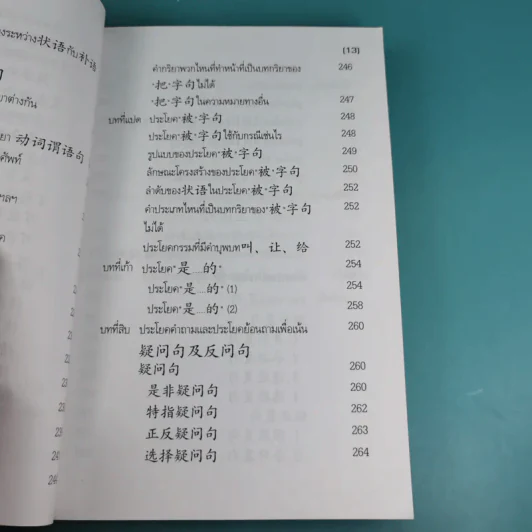 งระหว่าง状语กับ补语
ยาต่างกัน
ยา 动词谓语句
ศัพท์
ฯลฯ
ค
[13]
คำกริยาพวกไหนที่ทำหน้าที่เป็นบทกริยาของ 246
"把"字句ไม่ได้
"把"字句ในความหมายทางอื่น 247
บทที่แปด ประโยค"被"字句 248
ประโยค"被"字句ใช้กับกรณีเช่นไร 248
รูปแบบของประโยค"被"字句 249
ลักษณะโครงสร้างของประโยค"被"字句 250
ลำดับของ状语ในประโยค"被"字句 252
คำประเภทไหนที่เป็นบทกริยาของ"被"字句 252
ไม่ได้
ประโยคกรรมที่มีคำบุพบท叫、让、给 252
บทที่เก้า ประโยค"是....的" 254
ประโยค"是....的" (1) 254
ประโยค"是....的" (2) 258
บทที่สิบ ประโยคคำถามและประโยคย้อนถามเพื่อเน้น 260
疑问句及反问句
疑问句 260
是非疑问句 260
特指疑问句 262
正反疑问句 263
选择疑问句 264